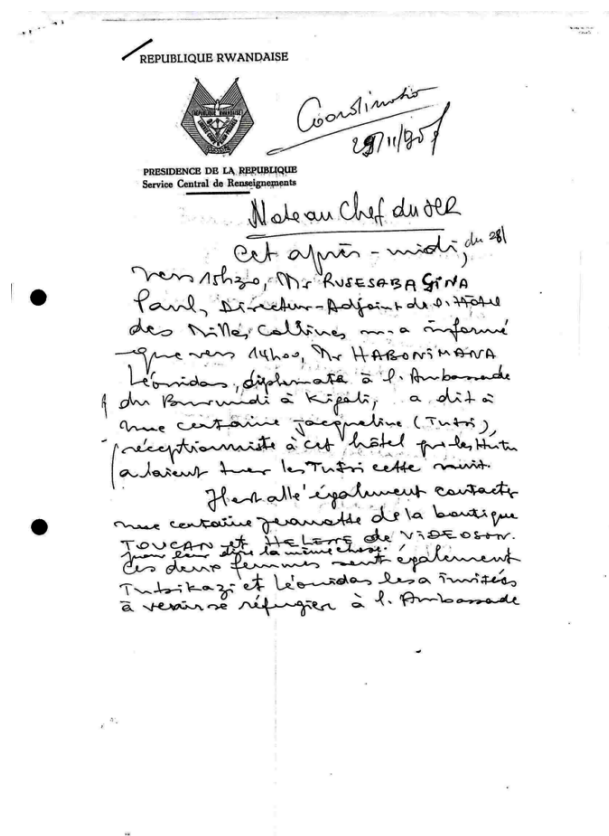 REPUBLIQUE RWANDAISE
Coordination
29/11/90
PRESIDENCE DE LA REPUBLIQUE
Service Central de Renseignements
Note au Chef du SCR
Cet après-midi, du 28/
vers 15h30, Mr RUSESABAGINA
Paul, Directeur-Adjoint de l'Hôtel
des Milles Collines m'a informé
que vers 14h00, Mr HABONIMANA
Léonidas, diplomate à l'Ambassade
du Burundi à Kigali, a dit à
une certaine Jacqueline (Tutsi),
réceptionniste à cet hôtel que les Hutu
allaient tuer les Tutsi cette nuit.
Il est allé également contacter
une certaine Jeannette de la boutique
TOUCAN et HELENE de VIDEOSON.
pour leur dire la même chose.
Ces deux femmes sont également
Tutsikazi et Léonidas les a invitées
à venir se réfugier à l'Ambassade